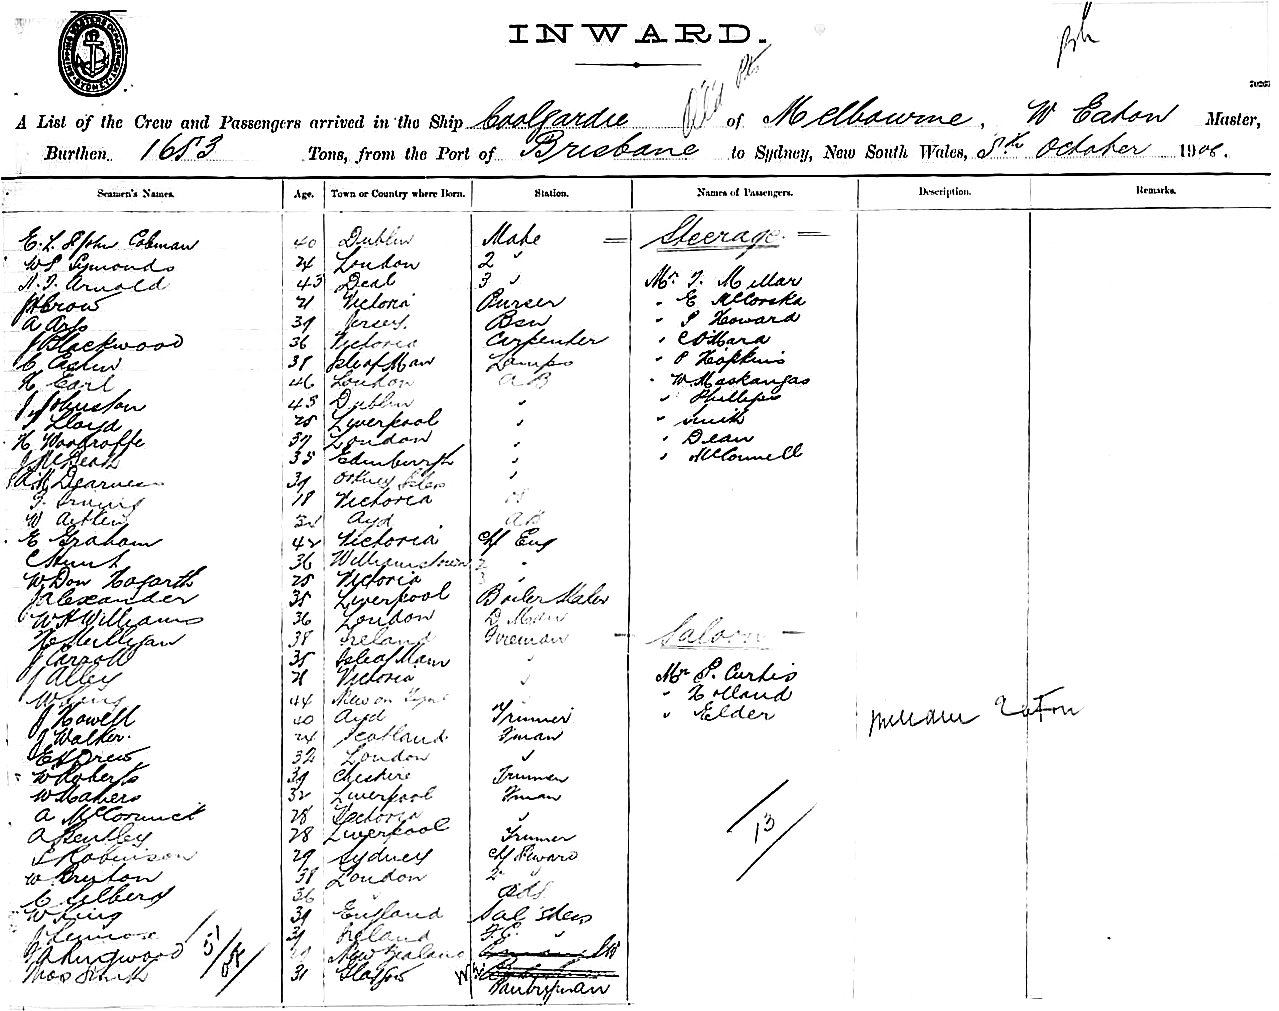 INWARD.
A List of the Crew and Passengers arrived in the Ship Coolgardie of Melbourne, W Eaton Master,
Burthen 1653 Tons, from the Port of Brisbane to Sydney, New South Wales, 8th October 1906.
Seamen's Names. Age. Town or Country where Born. Station. Names of Passengers. Description. Remarks.
E. L. St John Colman 40 Dublin Mate = Steerage =
W S Symonds 24 London 2 "
A. J. Arnold 43 Deal 3 " Mr. J. Millar
Crow 21 Victoria Purser " E McCorska
A 39 Jersey. Bsn " S Howard
J Blackwood 36 Victoria Carpenter " C O'Mara
C 38 Isle of Man Lamps " P Hopkins
H Earl 46 London AB " W Maskangas
J. Johnston 43 Dublin " " Phillips
J Lloyd 25 Liverpool " " Smith
H Woodroffe 37 London " " Dean
J McBeath 35 Edinburgh " " McConnell
Dearness 39 Orkney "
J. Irving 18 Victoria OS
W Aitken 32 Ayd AB
E Graham 42 Victoria Cf Eng
C Hunt 36 Williamstown 2 "
W Don Hogarth 25 Victoria 3 "
J Alexander 35 Liverpool Boiler Maker
W H Williams 36 London D. Man
Mulligan 38 Ireland Fireman - Saloon -
J Carroll 35 Isle of Man "
J Alley 21 Victoria " Mr S. Curtis
W King 44 New on Tyne " " Holland
J Howell 40 Ayd Trimmer " Elder William Eaton
J Walker. 24 Scotland Fman
E H Drew 32 London "
W Roberts 39 Cheshire Trimmer
W Mahers 32 Liverpool Fman
A McCormick 28 Victoria "
A Bentley 28 Liverpool Trimmer 13
S Robinson 29 Sydney Cf Steward
W Bruton 38 London 2 "
C Selberg 36 " Ads
W King 39 England Sal Stess
J Lennox 39 Ireland F.C. "
Ringwood New Zealand SW
Thos Smith 31 Glasgow
Pantryman